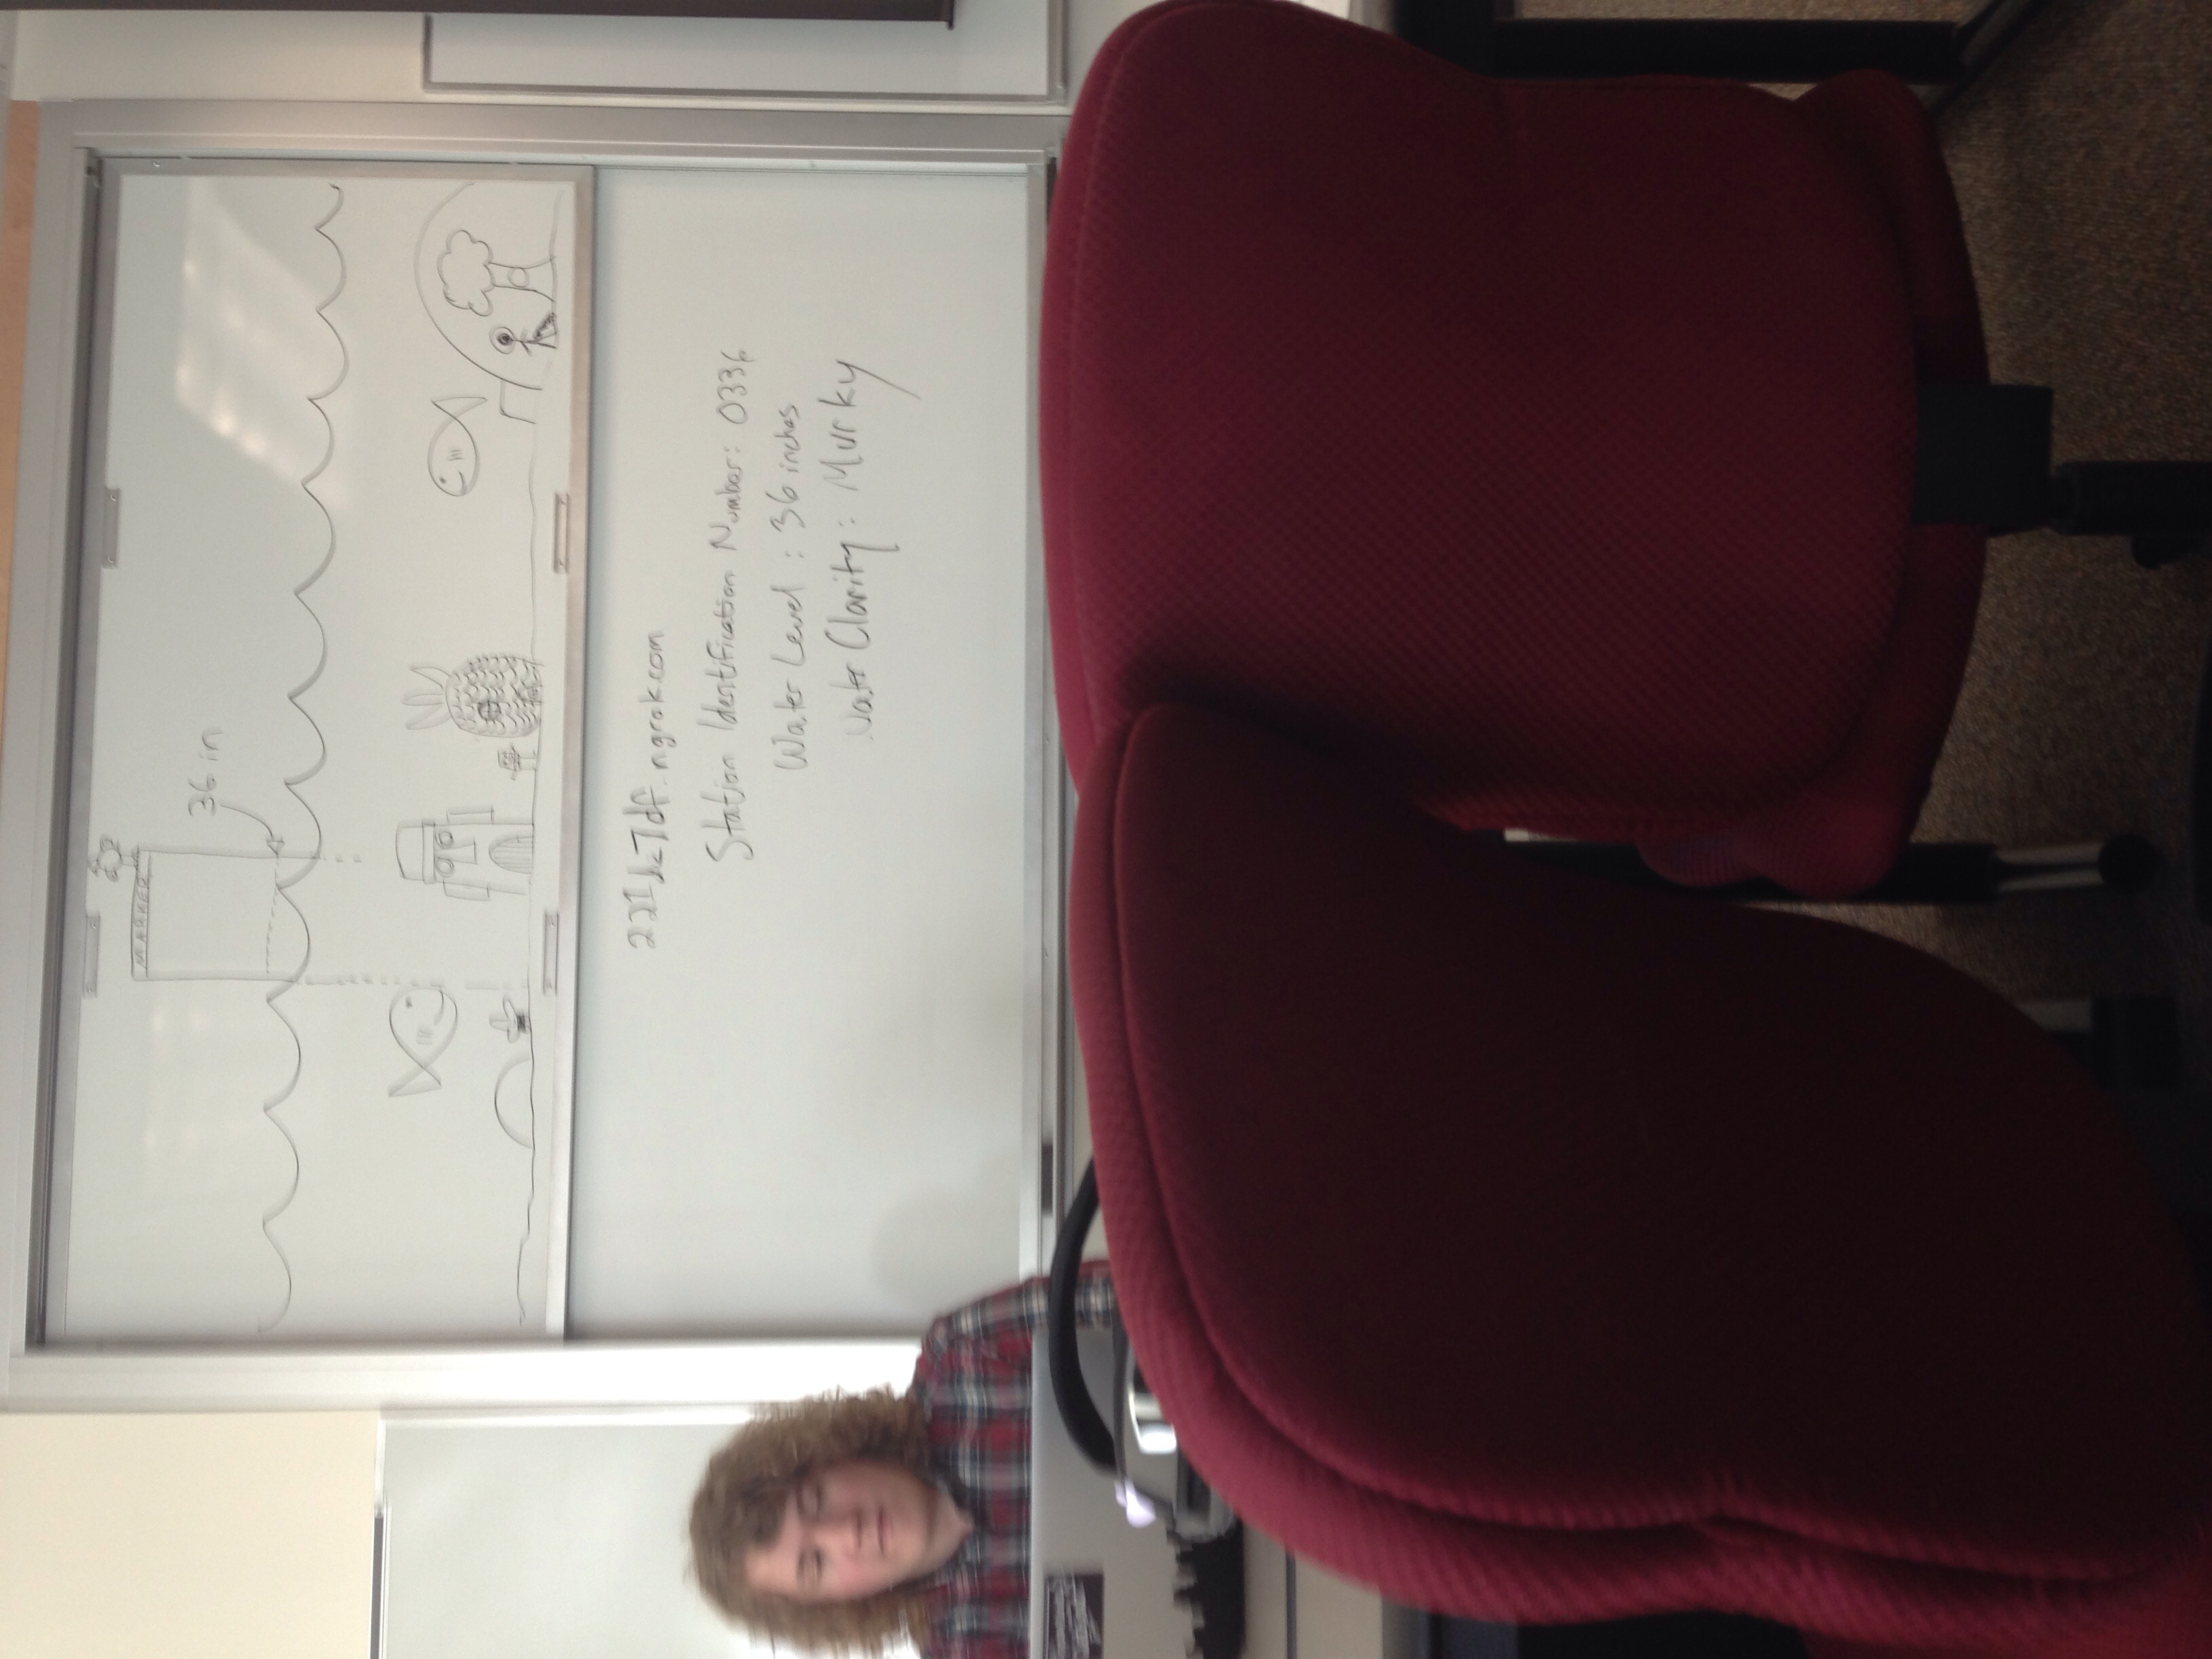 MARKER
36 in
.ngrok.com
Station Identification Number: 0336
Water Level : 36 inches
Water Clarity : Murky